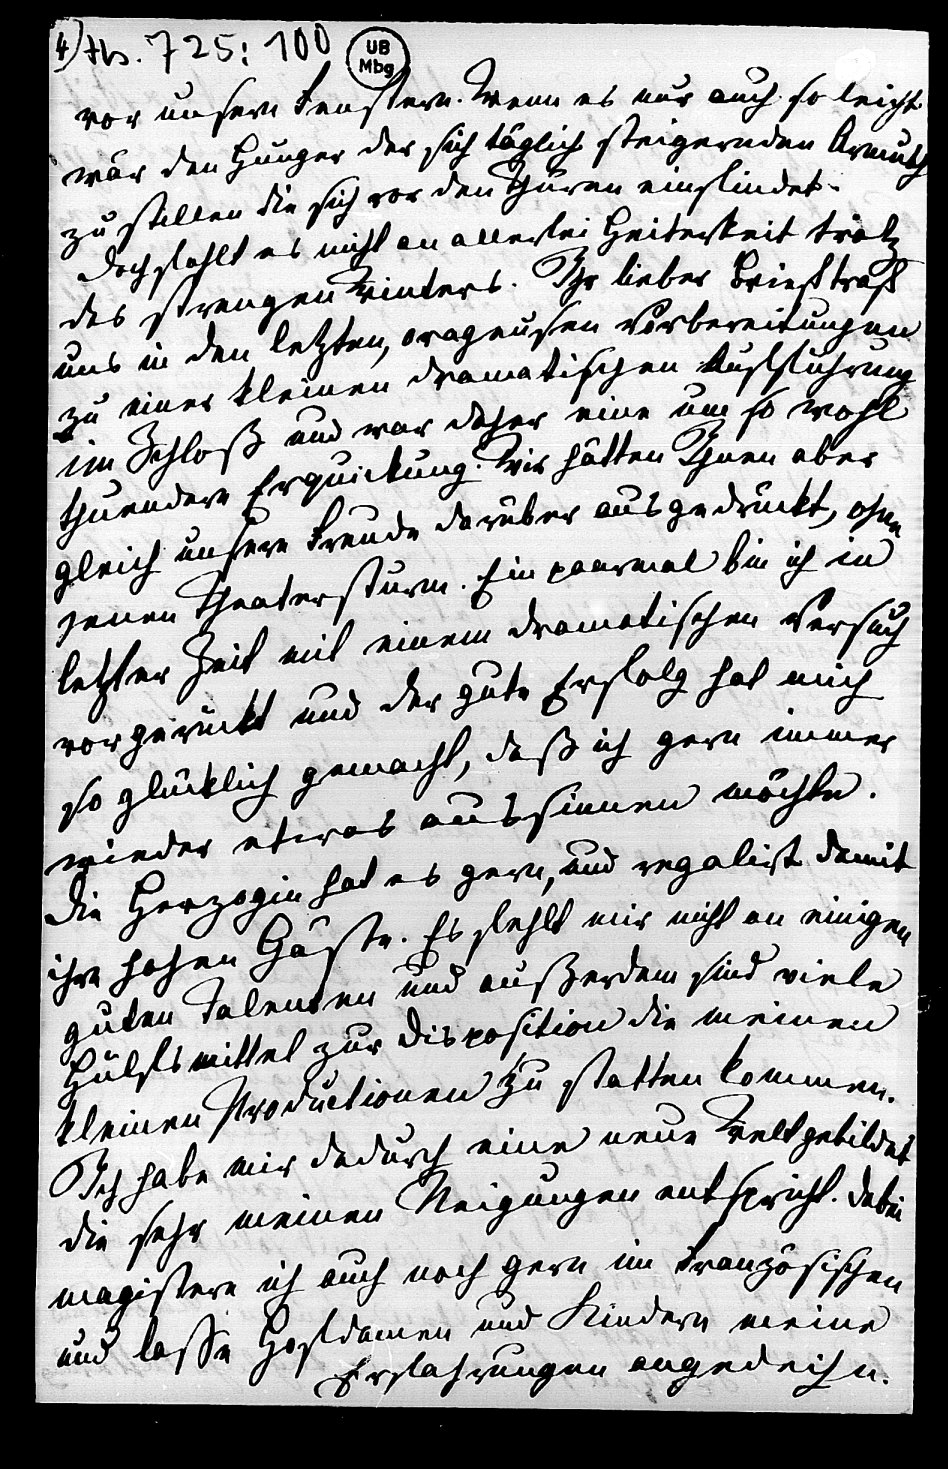 4) Hs. 725: 100 UB Mbg
vor unsern Fenstern. Wenn es nur auch so leicht
wär den Hunger der sich täglich steigernden Armuth
zu stillen die sich vor den Thüren einfindet.
Doch fehlt es nicht an allerlei Heiterkeit trotz
des strengen Winters. Ihr lieber Brief traf
uns in den letzten, orageusen Vorbereitungen
zu einer kleinen dramatischen Aufführung
im Schloß und war daher eine um so wohl
thuendere Erquickung. Wir hätten Ihnen aber
gleich unsere Freude darüber ausgedrückt, ohne
jenen Theatersturm. Ein paarmal bin ich in
letzter Zeit mit einem dramatischen Versuch
vorgerückt und der gute Erfolg hat mich
so glücklich gemacht, daß ich gern immer
wieder etwas aussinnen möchte.
Die Herzogin hat es gern, und regalirt damit
ihre hohen Gäste. Es fehlt mir nicht an einigen
guten Talenten und außerdem sind viele
Hülfsmittel zur Disposition die meinen
kleinen Productionen zu statten kommen.
Ich habe mir dadurch eine neue Welt gebildet
die sehr meinen Neigungen entspricht. Dabei
magistere ich auch noch gern im Französischen
und lasse Hofdamen und Kindern meine
Erfahrungen angedeihn.